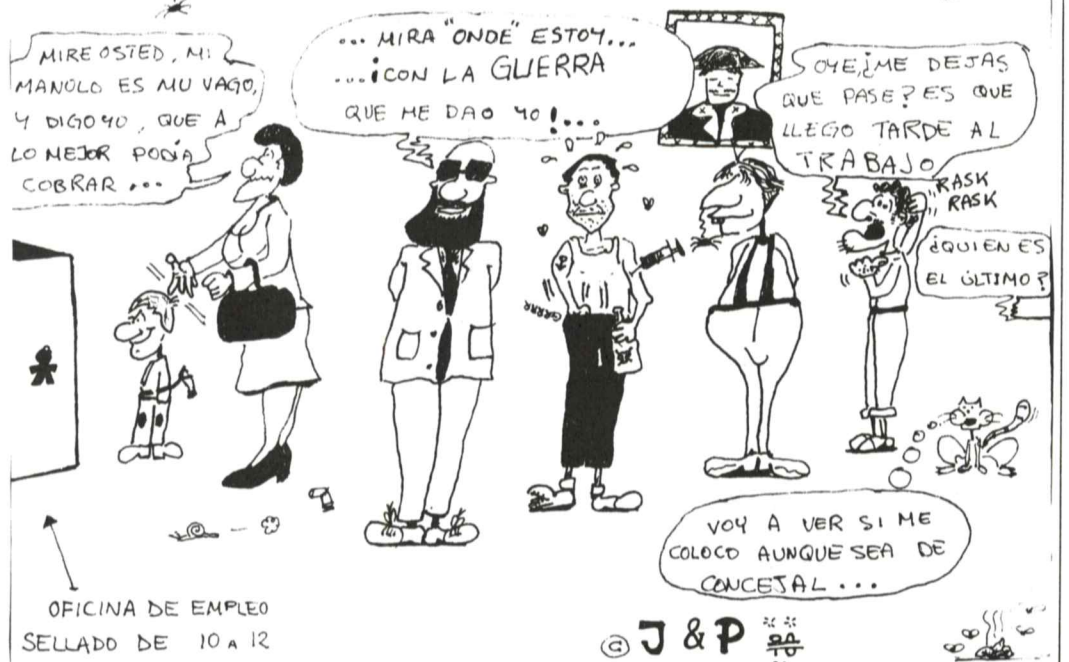 MIRE OSTED, MI
MANOLO ES MU VAGO,
Y DIGO YO, QUE A
LO MEJOR PODÍA
COBRAR ...
... MIRA "ONDE" ESTOY...
...¡CON LA GUERRA
QUE ME DAO YO!...
OYE,¿ME DEJAS
QUE PASE? ES QUE
LLEGO TARDE AL
TRABAJO
RASK
RASK
¿QUIEN ES
EL ÚLTIMO?
GRRRR
VOY A VER SI ME
COLOCO AUNQUE SEA DE
CONCEJAL...
OFICINA DE EMPLEO
SELLADO DE 10 A 12
© J & P